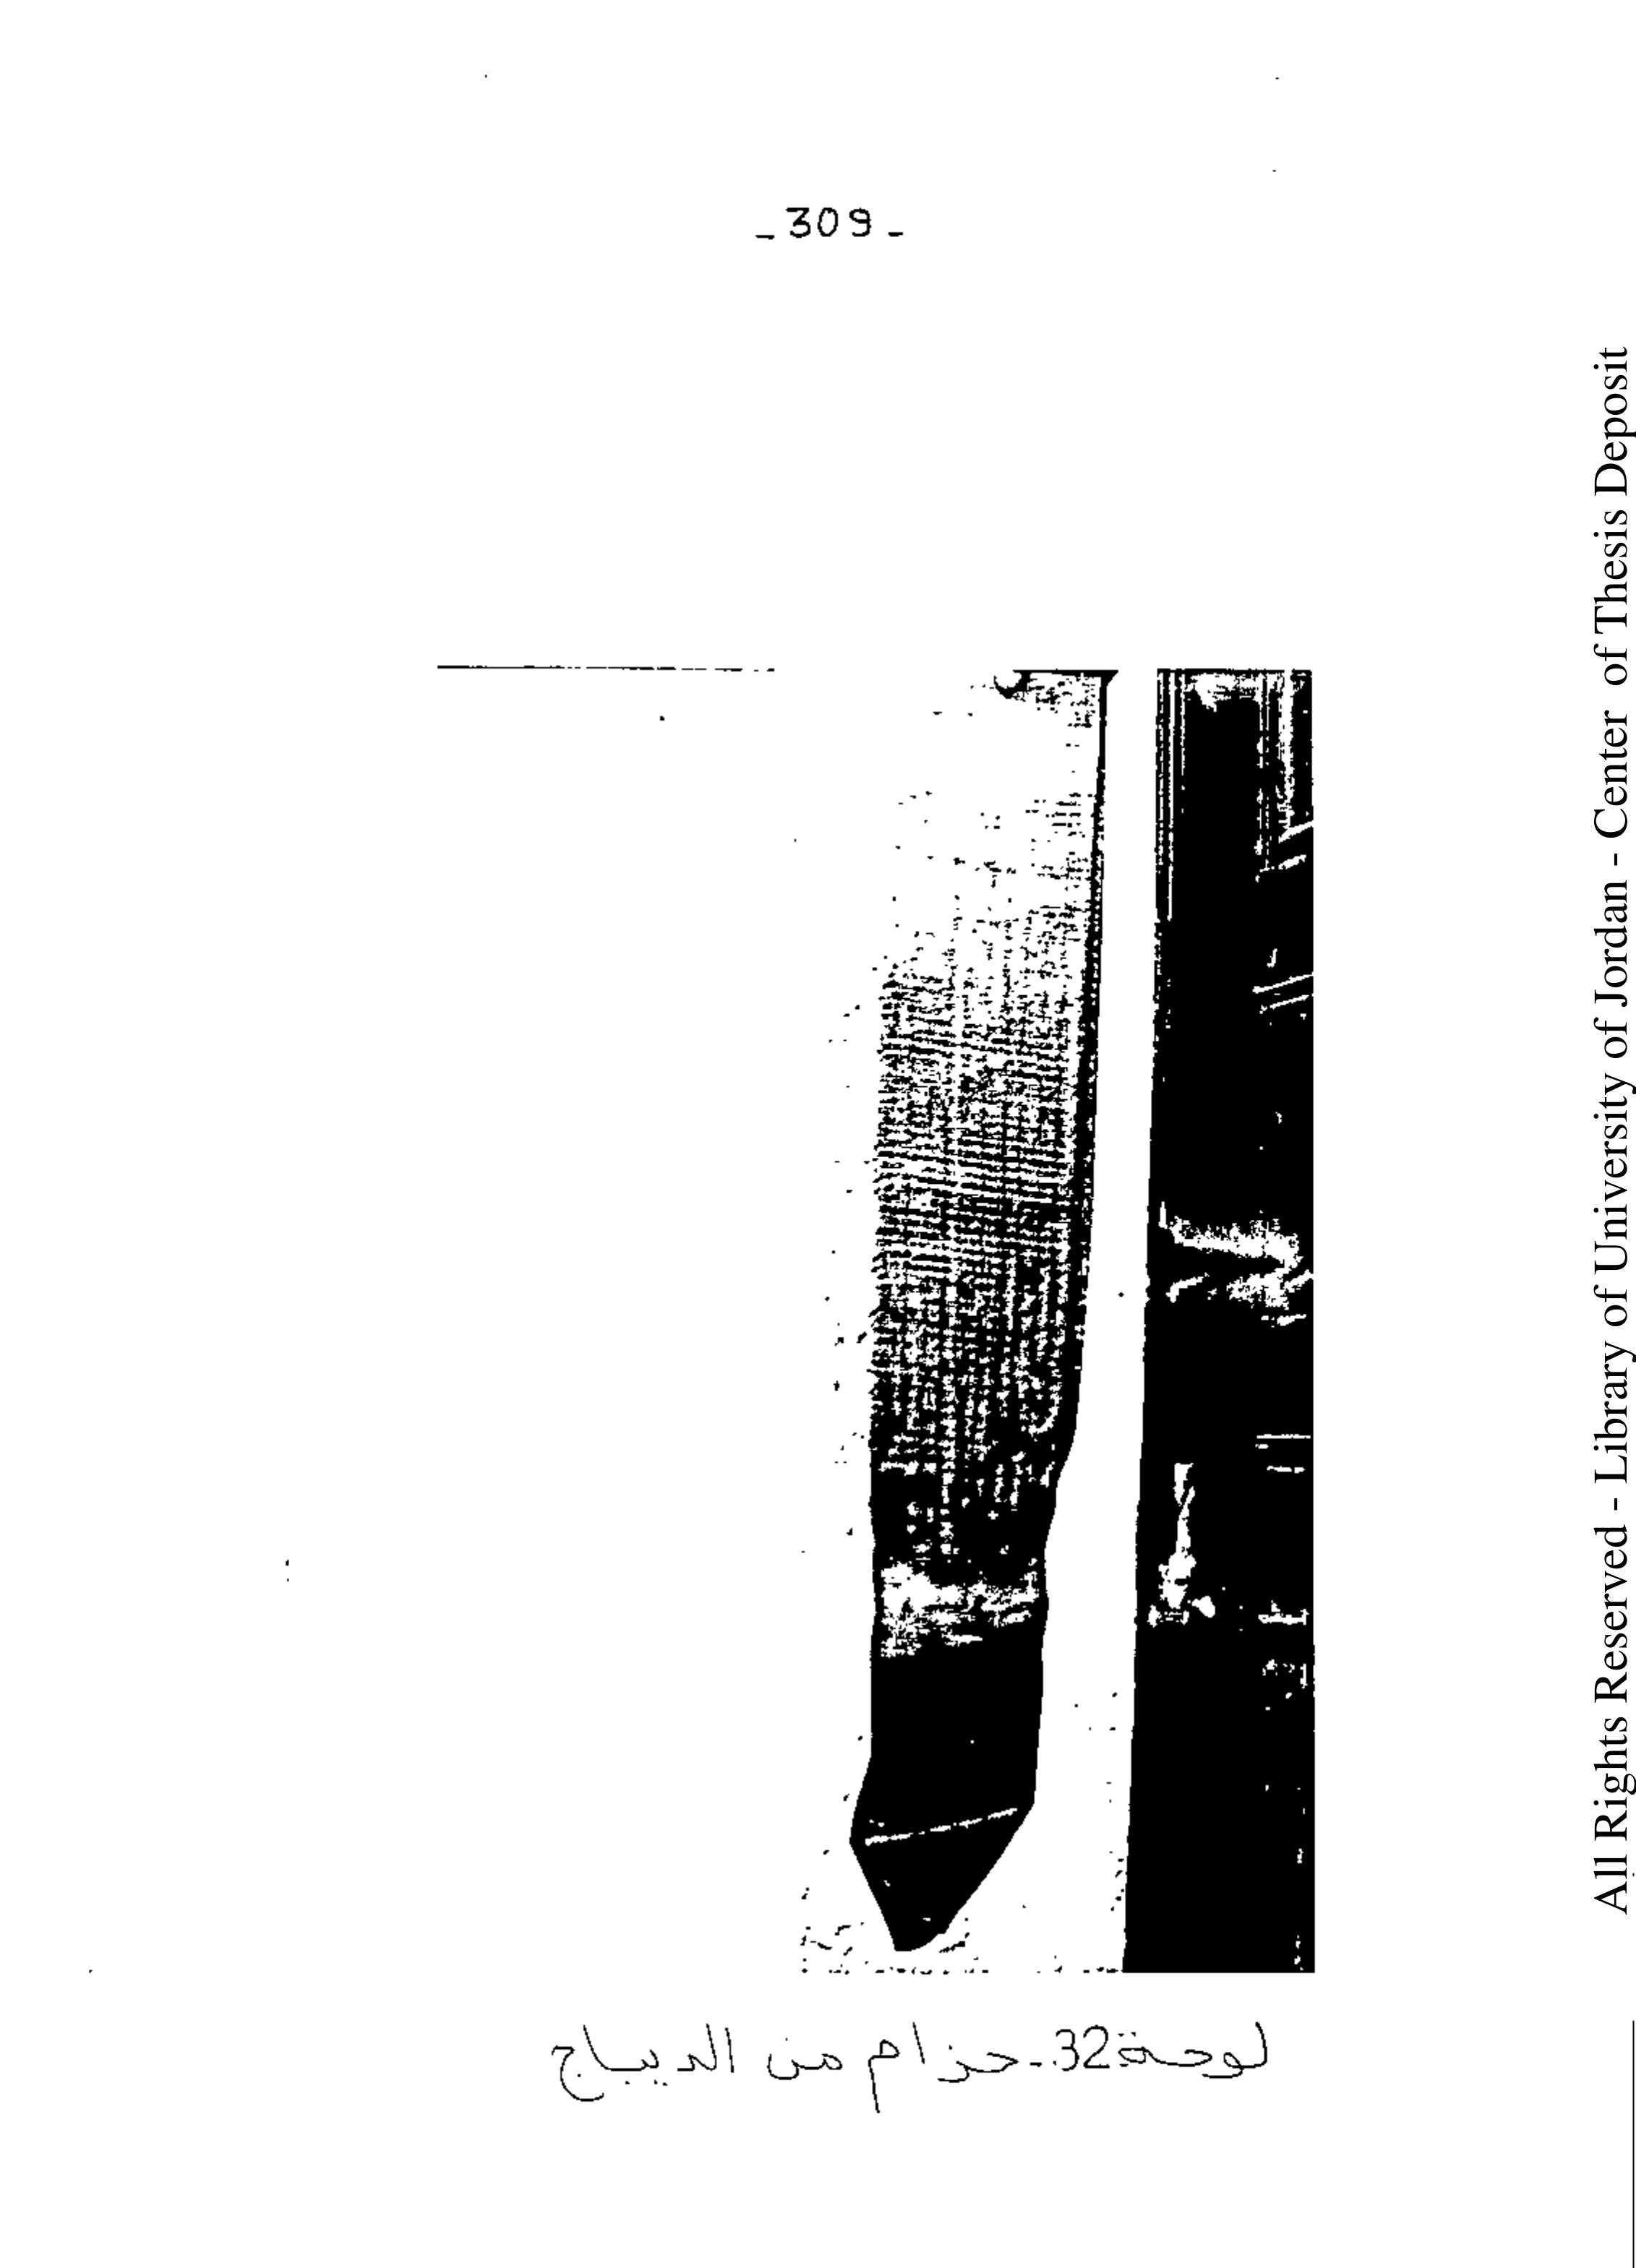 _309_
لوحة 32 - حزام من الديباج
All Rights Reserved - Library of University of Jordan - Center of Thesis Deposit